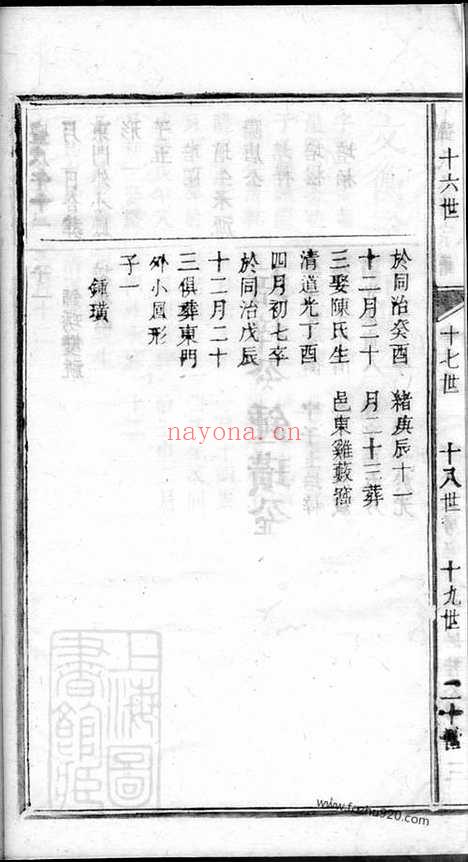 十六世
十七世
十八世
十九世
二十世
於同治癸酉
十二月二十
三娶陳氏生
清道光丁酉
四月初七卒
於同治戊辰
十二月二十
三俱葬東門
外小鳳形
子一
鍾璜
緒庚辰十一
月二十三葬
邑東雞藪窩
上海圖
書館藏
nayona.cn
www.fozhu920.com